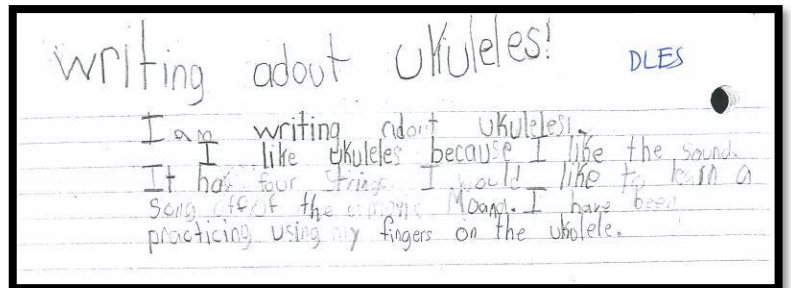 writing adout ukuleles!
DLES
I am writing adout ukuleles!
I like ukuleles because I like the sound.
It has four strings I would like to learn a
song off of the movie Moana. I have been
practicing using my fingers on the ukolele.